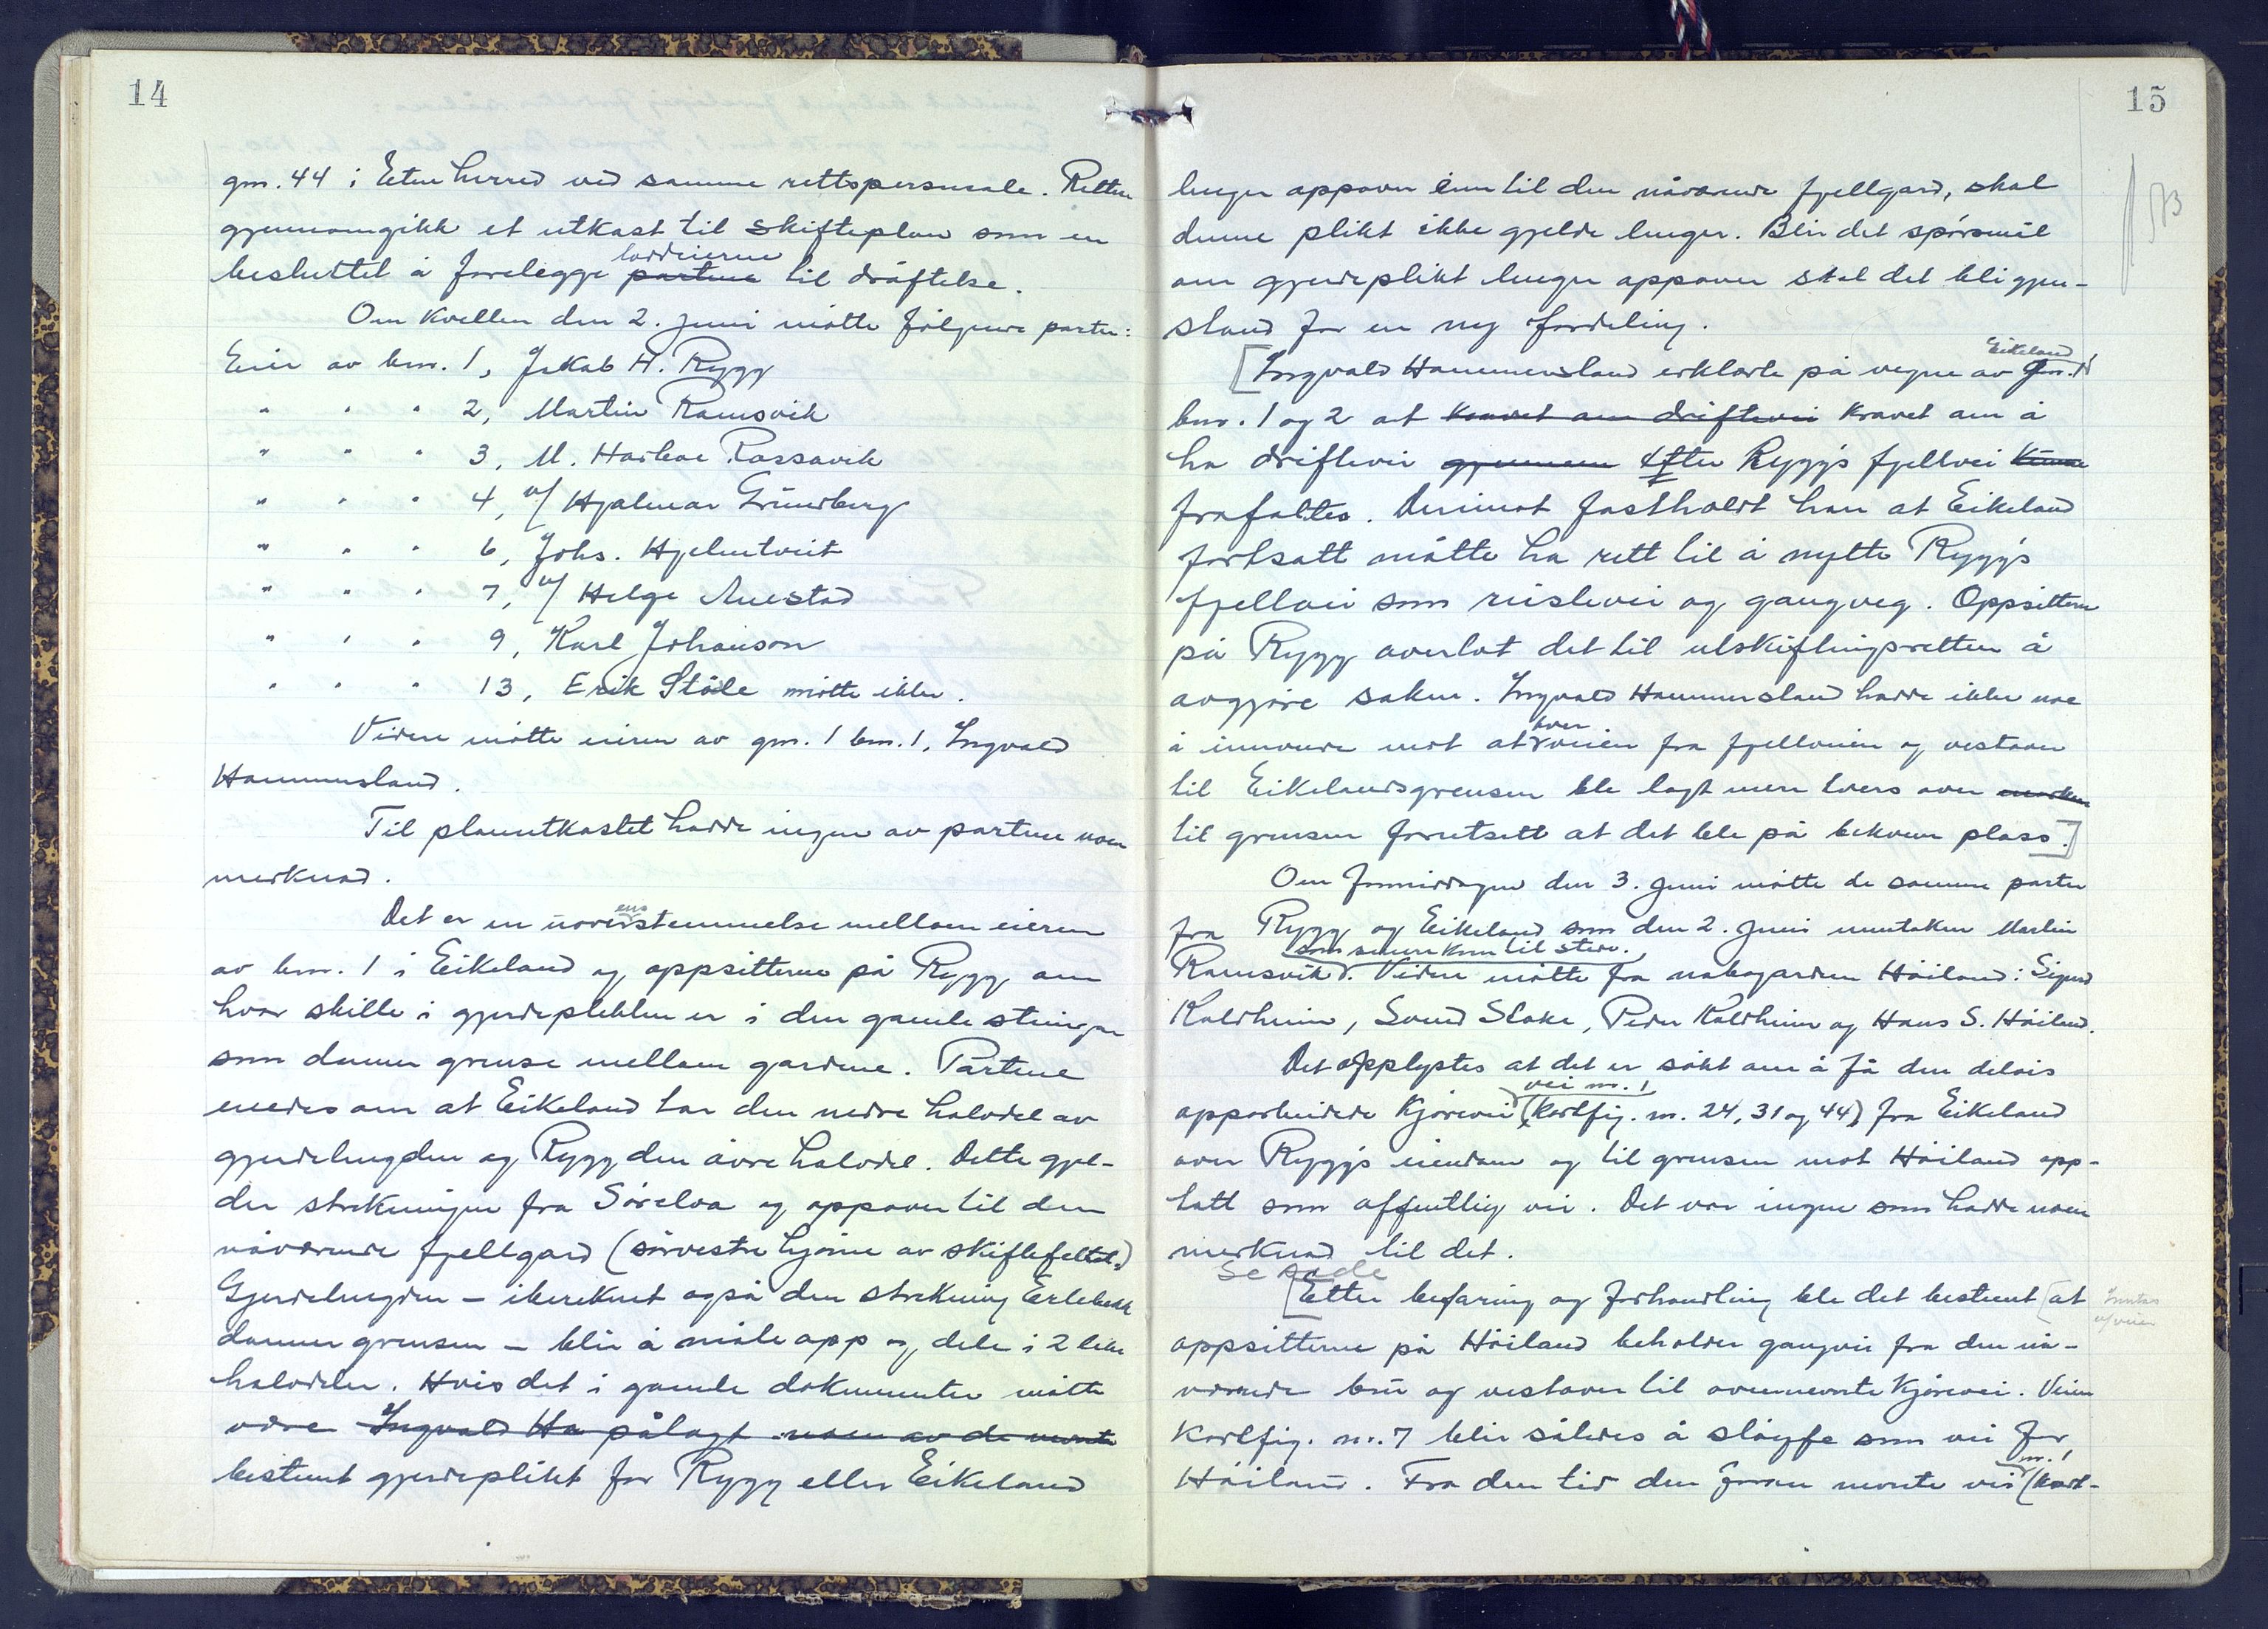 14
gnr. 44 i Etne herred ved samme rettspersonale. Retten
gjennomgikk et utkast til skifteplan som en
besluttet å forelegge partene loddeierne til drøftelse.
Om kvelden den 2. juni møtte følgende parter:
Eier av bnr. 1, Jakob H. Rygg
" " " 2, Martin Ramsvik
" " " 3, M. Harboe Rossavik
" " " 4, v/ Hjalmar Grindberg
" " " 6, Johs. Hjelmtveit
" " " 7, v/ Helge Auestad
" " " 9, Karl Johanson
" " " 13, Erik Ståle møtte ikke.
Videre møtte eieren av gnr. 1 bnr. 1, Ingvald
Hammersland.
Til planutkastet hadde ingen av partene noen
merknad.
Det er en uoverensstemmelse mellom eieren
av bnr. 1 i Eikeland og oppsitterne på Rygg om
hvor skille i gjerdeplikten er i den gamle steingar
som danner grense mellom gardene. Partene
enedes om at Eikeland har den nedre halvdel av
gjerdelengden og Rygg den øvre halvdel. Dette gjel-
der strekningen fra Sørelva og oppover til den
nåværende fjellgard (sørvestre hjørne av skiftefeltet.)
Gjerdelengden – ibereknet også den strekning Erlebekk
danner grensen – blir å måle opp og dele i 2 like
halvdeler. Hvis det i gamle dokumenter måtte
være Ingvald Ha pålagt noen av de nevnte
bestemt gjerdeplikt for Rygg eller Eikeland
15
lenger oppover enn til den nåværende fjellgard, skal
denne plikt ikke gjelde lenger. Blir det spørsmål
om gjerdeplikt lenger oppover skal det bli gjen-
stand for en ny fordeling.
[Ingvald Hammersland erklærte på vegne av gnr. 1 Eikeland
bnr. 1 og 2 at kravet om driftevei kravet om å
ha driftevei gjennem efter Rygg's fjellvei kunne
frafaltes. Derimot fastholdt han at Eikeland
fortsatt måtte ha rett til å nytte Rygg's
fjellvei som reislevei og gangveg. Oppsitterne
på Rygg overlot det til utskiftingsretten å
avgjøre saken. Ingvald Hammersland hadde ikke noe
å innvende mot at tverrveien fra fjellveien og vestover
til Eikelandsgrensen ble lagt mere tvers over marken
til grensen forutsett at det ble på bekvem plass.]
Om formiddagen den 3. juni møtte de samme parter
fra Rygg og Eikeland som den 2. juni unntaken Martin
Ramsvik som senere kom til stede. Videre møtte fra nabogarden Høiland: Sigurd
Kaldheim, Svend Stoke, Peder Kaldheim og Hans S. Høiland.
Det opplystes at det er søkt om å få den delvis
opparbeidede kjørevei vei nr. 1 (kartfig. nr. 24, 31 og 44) fra Eikeland
over Rygg's eiendom og til grensen mot Høiland opp-
tatt som offentlig vei. Det var ingen som hadde noen
merknad til det.
Se side
[Etter befaring og forhandling ble det bestemt [at
oppsitterne på Høiland beholder gangvei fra den nå-
værende bru og vestover til ovennevnte kjørevei. Veien
kartfig. nr. 7 blir således å sløyfe som vei for
Høiland. Fra den tid den foran nevnte vei nr. 1 (kart-
Inntas
u/veier